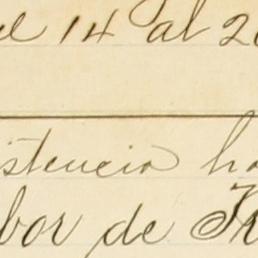 el 14 al 2
istencia ha
bor de Fr